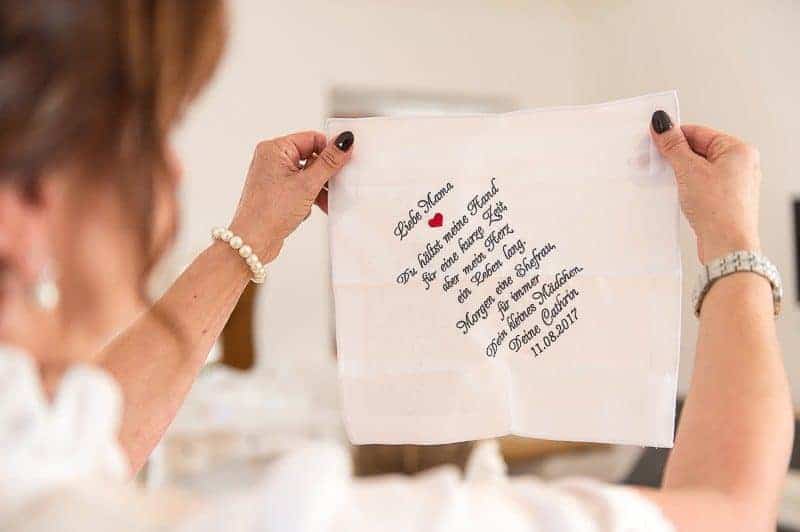 Liebe Mama
Du hältst meine Hand
für eine kurze Zeit,
aber mein Herz
ein Leben lang.
Morgen eine Ehefrau,
für immer
Dein kleines Mädchen.
Deine Cathrin
11.08.2017